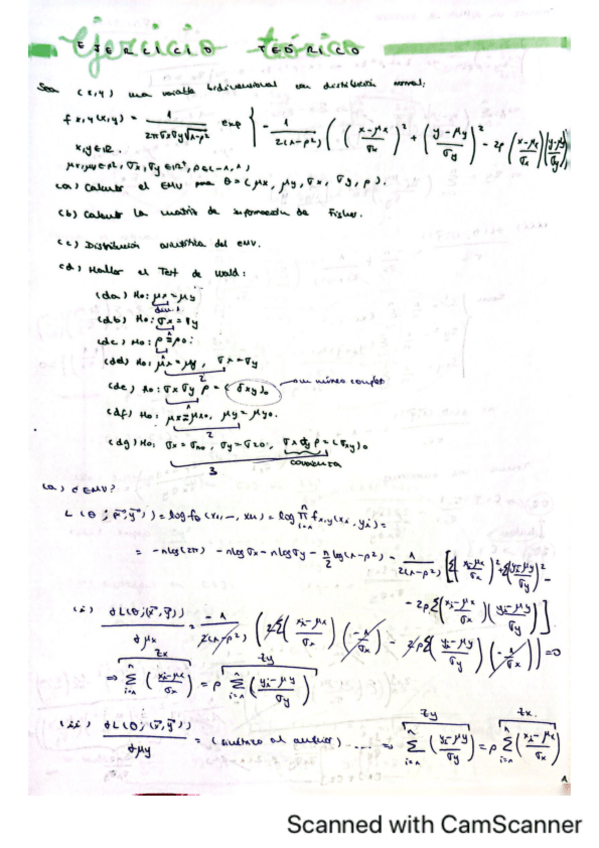 Ejercicio teórico
EJERCICIO TEÓRICO
Sea (x,y) una variable bidimensional con distribución normal:
f x,y(x,y) = 1/(2πσxσy√1-ρ²) exp { -1/(2(1-ρ²)) ( ((x-μx)/σx)² + ((y-μy)/σy)² - 2ρ((x-μx)/σx)((y-μy)/σy)
x,y∈ℝ.
μx,μy∈ℝ, σx,σy∈ℝ⁺, ρ∈(-1,1)
(a) Calcular el EMV para θ=(μx, μy, σx, σy, ρ).
(b) Calcular la matriz de información de Fisher.
(c) Distribución asintótica del EMV.
(d) Hallar el Test de Wald:
(da) H₀: μx=μy
dim 1
(db) H₀: σx=σy
1
(dc) H₀: ρ=ρ₀:
1
(dd) H₀: μx=μy, σx=σy
2
(de) H₀: σxσyρ = (σxy)₀ → un número
1
(df) H₀: μx=μx₀, μy=μy₀.
2
(dg) H₀: σx=σx₀, σy=σ20, σxσyρ=(σxy)₀
3 covarianza
(a) ¿EMV?
L(θ; x⃗,y⃗) = log fθ(x₁,…,xn) = log ∏ᵢ₌₁ⁿ fx,y(xi, yi)=
= -nlog(2π) - nlogσx - nlogσy - n/2 log(1-ρ²) - 1/(2(1-ρ²)) [Σ((xi-μx)/σx)² + Σ((yi-μy)/σy)² -
- 2ρΣ((xi-μx)/σx)((yi-μy)/σy)].
(i) ∂L(θ;(x⃗,y⃗))/∂μx = -1/(2(1-ρ²)) (2Σ((xi-μx)/σx)(-1/σx) - 2ρΣ((yi-μy)/σy)(-1/σx))=0
zx zy
⇒ Σᵢ₌₁ⁿ((xi-μx)/σx) = ρ Σᵢ₌₁ⁿ((yi-μy)/σy)
zy zx.
(ii) ∂L(θ;(x⃗,y⃗))/∂μy = (análogo al anterior) .... ⇒ Σᵢ₌₁ⁿ((yi-μy)/σy) = ρ Σᵢ₌₁ⁿ((xi-μx)/σx)
1
Scanned with CamScanner